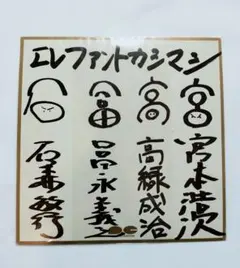 エレファントカシマシ
宮
高
冨
石
宮本浩次
高緑成治
冨永義之
石森敏行